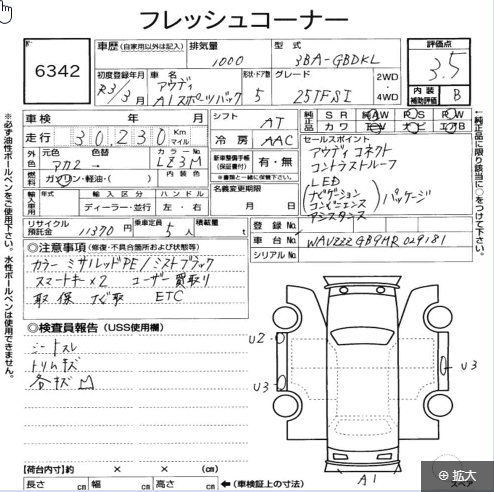 フレッシュコーナー
6342
車歴 (自家用以外は記入)
排気量 1000
型式 3BA-GBDKL
評価点 3.5
初度登録年月 R3/3月
車名 アウディ A1スポーツバック
形状・ドア数 5
グレード 25TFSI
2WD ・ 4WD
内装補助評価 B
車検 年 月
シフト AT
純正品 SR 純AW PS PW
カワ エアB
走行 30,230 Km マイル
冷房 AAC
セールスポイント
アウディコネクト
コントラストルーフ
LED
(ナビゲーション コンビニエンス アシスタンス) パッケージ
外色 元色 色替 アカ2→
カラーNo. LZ3M
新車整備手帳 (保証書付) 有・無
※書類と一緒に保管下さい。
燃料 ガソリン・軽油・( )
内装色
名義変更期限 月 日
輸入車用 年式 輸入区分 ディーラー・並行
ハンドル 左・右
リサイクル預託金 11370円
乗車定員 5人
積載量 t
登録No.
車台No. WAUZZZGB9MR029181
シリアルNo.
◎注意事項 (修復・不具合箇所および状態等)
カラー ミサノレッドPE/ミストブラック
スマートキー×2 ユーザー買取り
取 保 ナビ取 ETC
◎検査員報告 (USS使用欄)
シートスレ
トリムキズ
各キズ
U2
U3
U3
A1
【荷台内寸】約 × × (cm)
長さ cm 幅 cm 高さ cm ←(車検証上の寸法)
スペア
拡大
※必ず油性ボールペンをご使用下さい。水性ボールペンは使用できません。
←純正品に限り該当に○をつけて下さい。